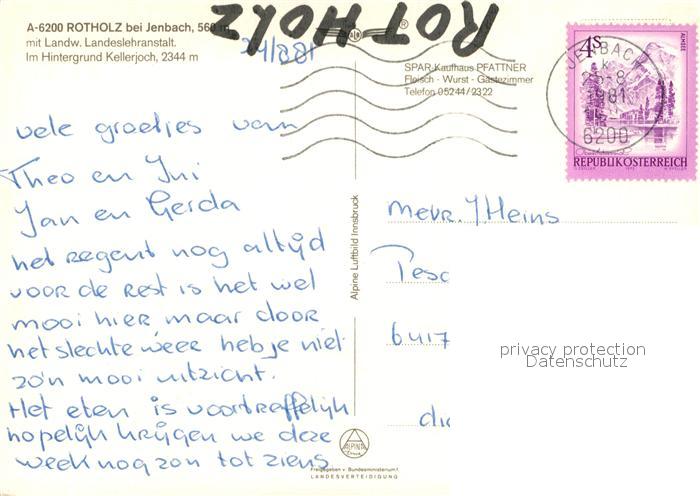 A-6200 ROTHOLZ bei Jenbach, 560 m
mit Landw. Landeslehranstalt.
Im Hintergrund Kellerjoch, 2344 m
ROTHOLZ
24/8 81
SPAR-Kaufhaus PFATTNER
Fleisch - Wurst - Gästezimmer
Telefon 05244/2322
4S
ALMSEE
REPUBLIK ÖSTERREICH
JENBACH
k
25.-8.
1981
6200
vele groetjes van
Theo en
Jan en Gerda
het regent nog altijd
voor de rest is het wel
mooi hier maar door
het slechte weer heb je niet
zo'n mooi uitzicht.
Het eten is voortreffelijk
hopelijk krijgen we deze
week nog zon tot ziens
Alpine Luftbild Innsbruck
Mevr. Heins
Tesc
6417
die
privacy protection
Datenschutz
ALPINA
Freigegeben v. Bundesministerium f.
LANDESVERTEIDIGUNG